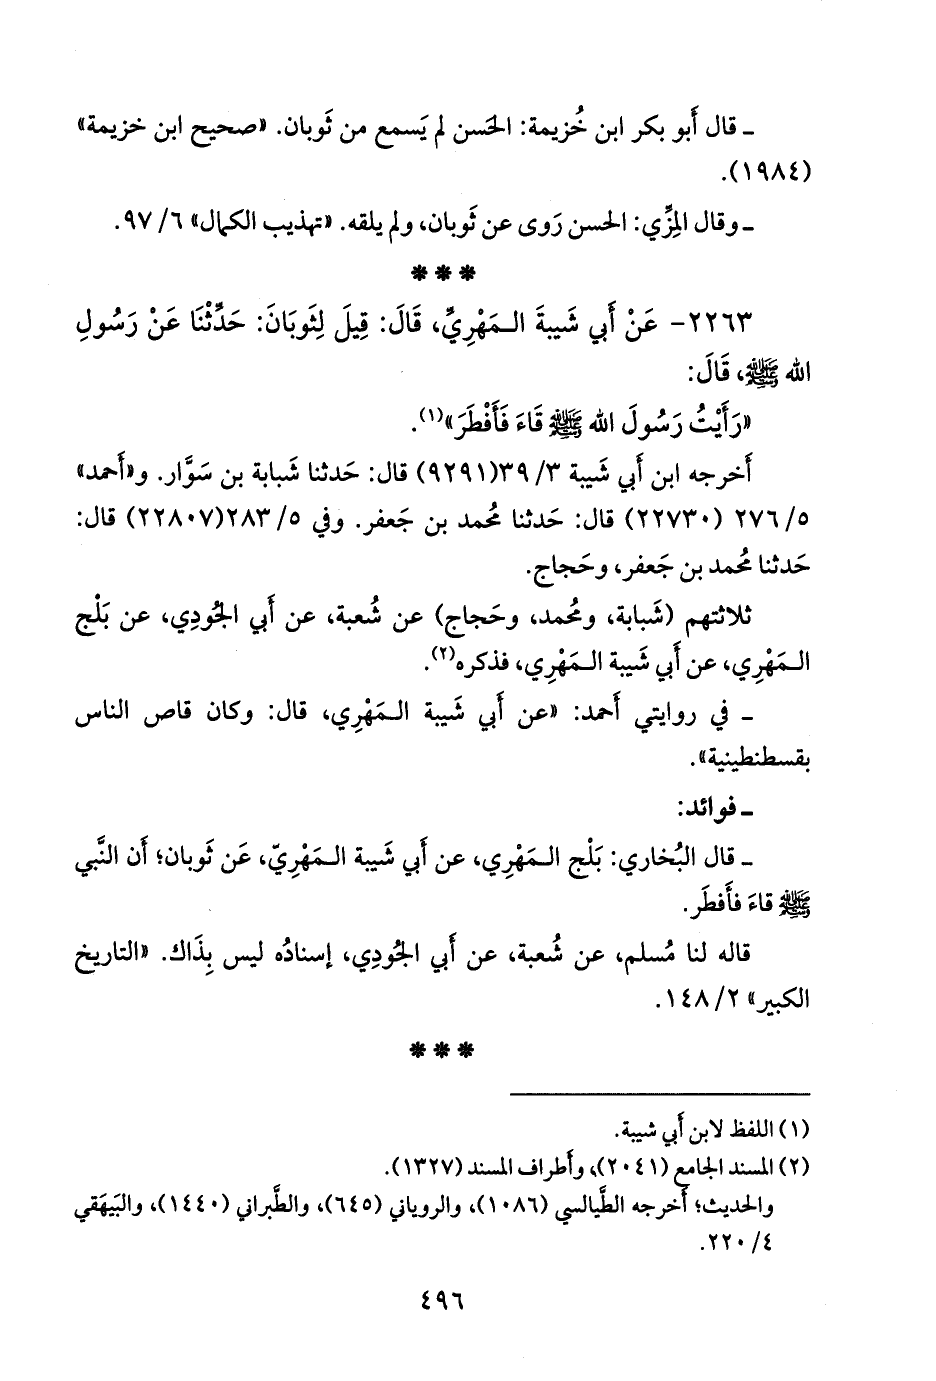 ـ قال أَبو بكر ابن خُزيمة: الحَسن لم يَسمع من ثَوبان. «صحيح ابن خزيمة»
(١٩٨٤).
ـ وقال المِزِّي: الحسن رَوى عن ثَوبان، ولم يلقه. «تهذيب الكمال» ٦/ ٩٧.
***
٢٢٦٣- عَنْ أَبي شَيبةَ الـمَهْرِيِّ، قَالَ: قِيلَ لِثَوبَانَ: حَدِّثْنَا عَنْ رَسُولِ
الله ﷺ، قَالَ:
«رَأَيْتُ رَسُولَ الله ﷺ قَاءَ فَأَفْطَرَ»(١).
أَخرجه ابن أَبي شَيبة ٣/ ٣٩(٩٢٩١) قال: حَدثنا شَبابة بن سَوَّار. و«أَحمد»
٥/ ٢٧٦ (٢٢٧٣٠) قال: حَدثنا مُحمد بن جَعفر. وفي ٥/ ٢٨٣(٢٢٨٠٧) قال:
حَدثنا مُحمد بن جَعفر، وحَجاج.
ثلاثتهم (شَبابة، ومُحمد، وحَجاج) عن شُعبة، عن أَبي الجُودِي، عن بَلْج
الـمَهْرِي، عن أَبي شَيبة الـمَهْرِي، فذكره(٢).
ـ في روايتي أَحمد: «عن أَبي شَيبة الـمَهْرِي، قال: وكان قاص الناس
بقسطنطينية».
ـ فوائد:
ـ قال البُخاري: بَلْج الـمَهْرِي، عن أَبي شَيبة الـمَهْرِيّ، عَن ثَوبان؛ أَن النَّبي
ﷺ قاءَ فأَفطَر.
قاله لنا مُسلم، عن شُعبة، عن أَبي الجُودِي، إسنادُه ليس بِذَاك. «التاريخ
الكبير» ٢/ ١٤٨.
***
(١) اللفظ لابن أَبي شيبة.
(٢) المسند الجامع (٢٠٤١)، وأَطراف المسند (١٣٢٧).
والحديث؛ أَخرجه الطَّيالسي (١٠٨٦)، والروياني (٦٤٥)، والطَّبراني (١٤٤٠)، والبَيهَقي
٤/ ٢٢٠.
٤٩٦